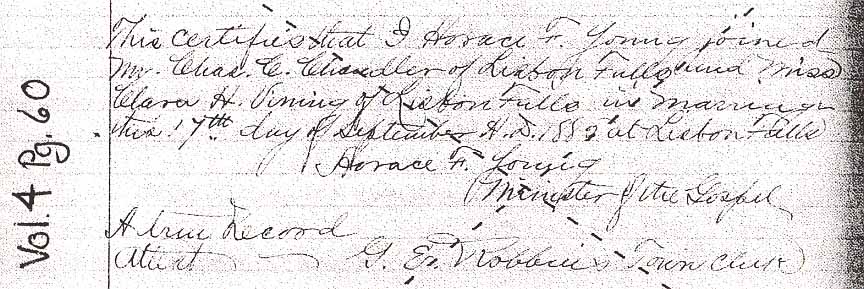 Vol. 4 Pg. 60
This certifies that I Horace F. Young joined
Mr. Chas. C. Chandler of Lisbon Falls and Miss
Clara H. Vining of Lisbon Falls in marriage
this 17th day of September A.D. 188 at Lisbon Falls
Horace F. Young
Minister of the Gospel
A true Record
Attest G. E. Robbins Town Clerk